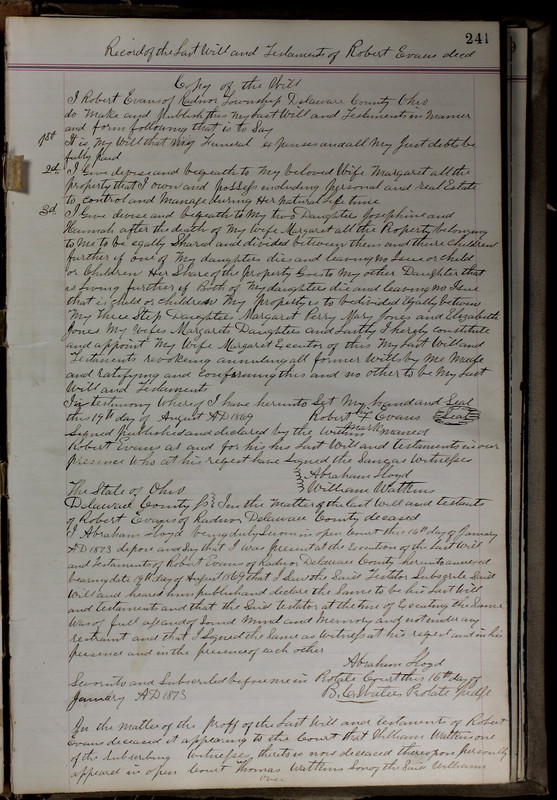 241
Record of the Last Will and Testament of Robert Evans decd
Copy of the Will
I Robert Evans of Radnor Township Delaware County Ohio
do Make and Publish this my Last Will and Testiment in manner
and form following that is to Say
1st It is My Will that My Funeral expenses and all My Just debts be
fully Paid
2d I Give devise and bequeath to My beloved Wife Margaret all the
property that I own and possess including personal and real Estate
to control and Manage during Her natural Life time
3d I Give devise and bequeath to My two Daughters Josephine and
Hannah after the death of My Wife Margaret all the Property belonging
to Me to be eqally Shared and divided between them and there Children
further if one of My daughters dies and leaving no Issue or child
or Children Her Share of the property Goes to My other Daughter that
is living further if Both of My daughters die and leaving no Issue
that is child or children My property is to be divided Eqally between
My three Step Daughters Margaret Perry Mary Jones and Elizabeth
Jones My Wifes Margarets Daughters and Lastly I hereby constitute
and appoint My Wife Margaret Executor of this My Last Will and
Testiments revoking annuling all former Wills by Me Made
and ratifying and Confirming this and no other to be My Last
Will and Testiment
In testimony Whereof I have hereunto Set My hand and Seal
this 19th day of August AD 1869 Robert X Evans Seal
Signed published and declared by the within mark named
Robert Evans as and for his his Last Will and testiments in our
presence Who at his reqest have Signed the Same as Witnesses
Abraham Lloyd
William Watkins
The State of Ohio
Delaware County ss In the Matter of the Last Will and testents
of Robert Evans of Radnor Delaware County deceased
I Abraham Lloyd being duly Sworn in open Court this 16th day of January
AD 1873 depose and Say that I was present at the Execution of the Last Will
and Testiments of Robert Evans of Radnor Delaware County hereunto annexed
bearing date 19th day of August 1869 that I Saw the Said Testator Subscribe Said
Will and heard him publish and declare the Same to be his Last Will
and testiment and that the Said testitor at the time of Executing the Same
Was of full age and of Sound Mind and Memory and not under any
restraint and that I Signed the Same as Witness at his reqest and in his
presence and in the presence of each other
Abraham Lloyd
Sworn to and Subscribed before me in Probate Court this 16th day of
January AD 1873 B. C. Waters Probate Judge
In the matter of the proff of the Last Will and testiments of Robert
Evans deceased it appearing to the Court that William Watkins one
of the Subscribing Witnesses thereto is now deceased thereupon personally
appeared in open Court Thomas Watkins Son of the Said William
over